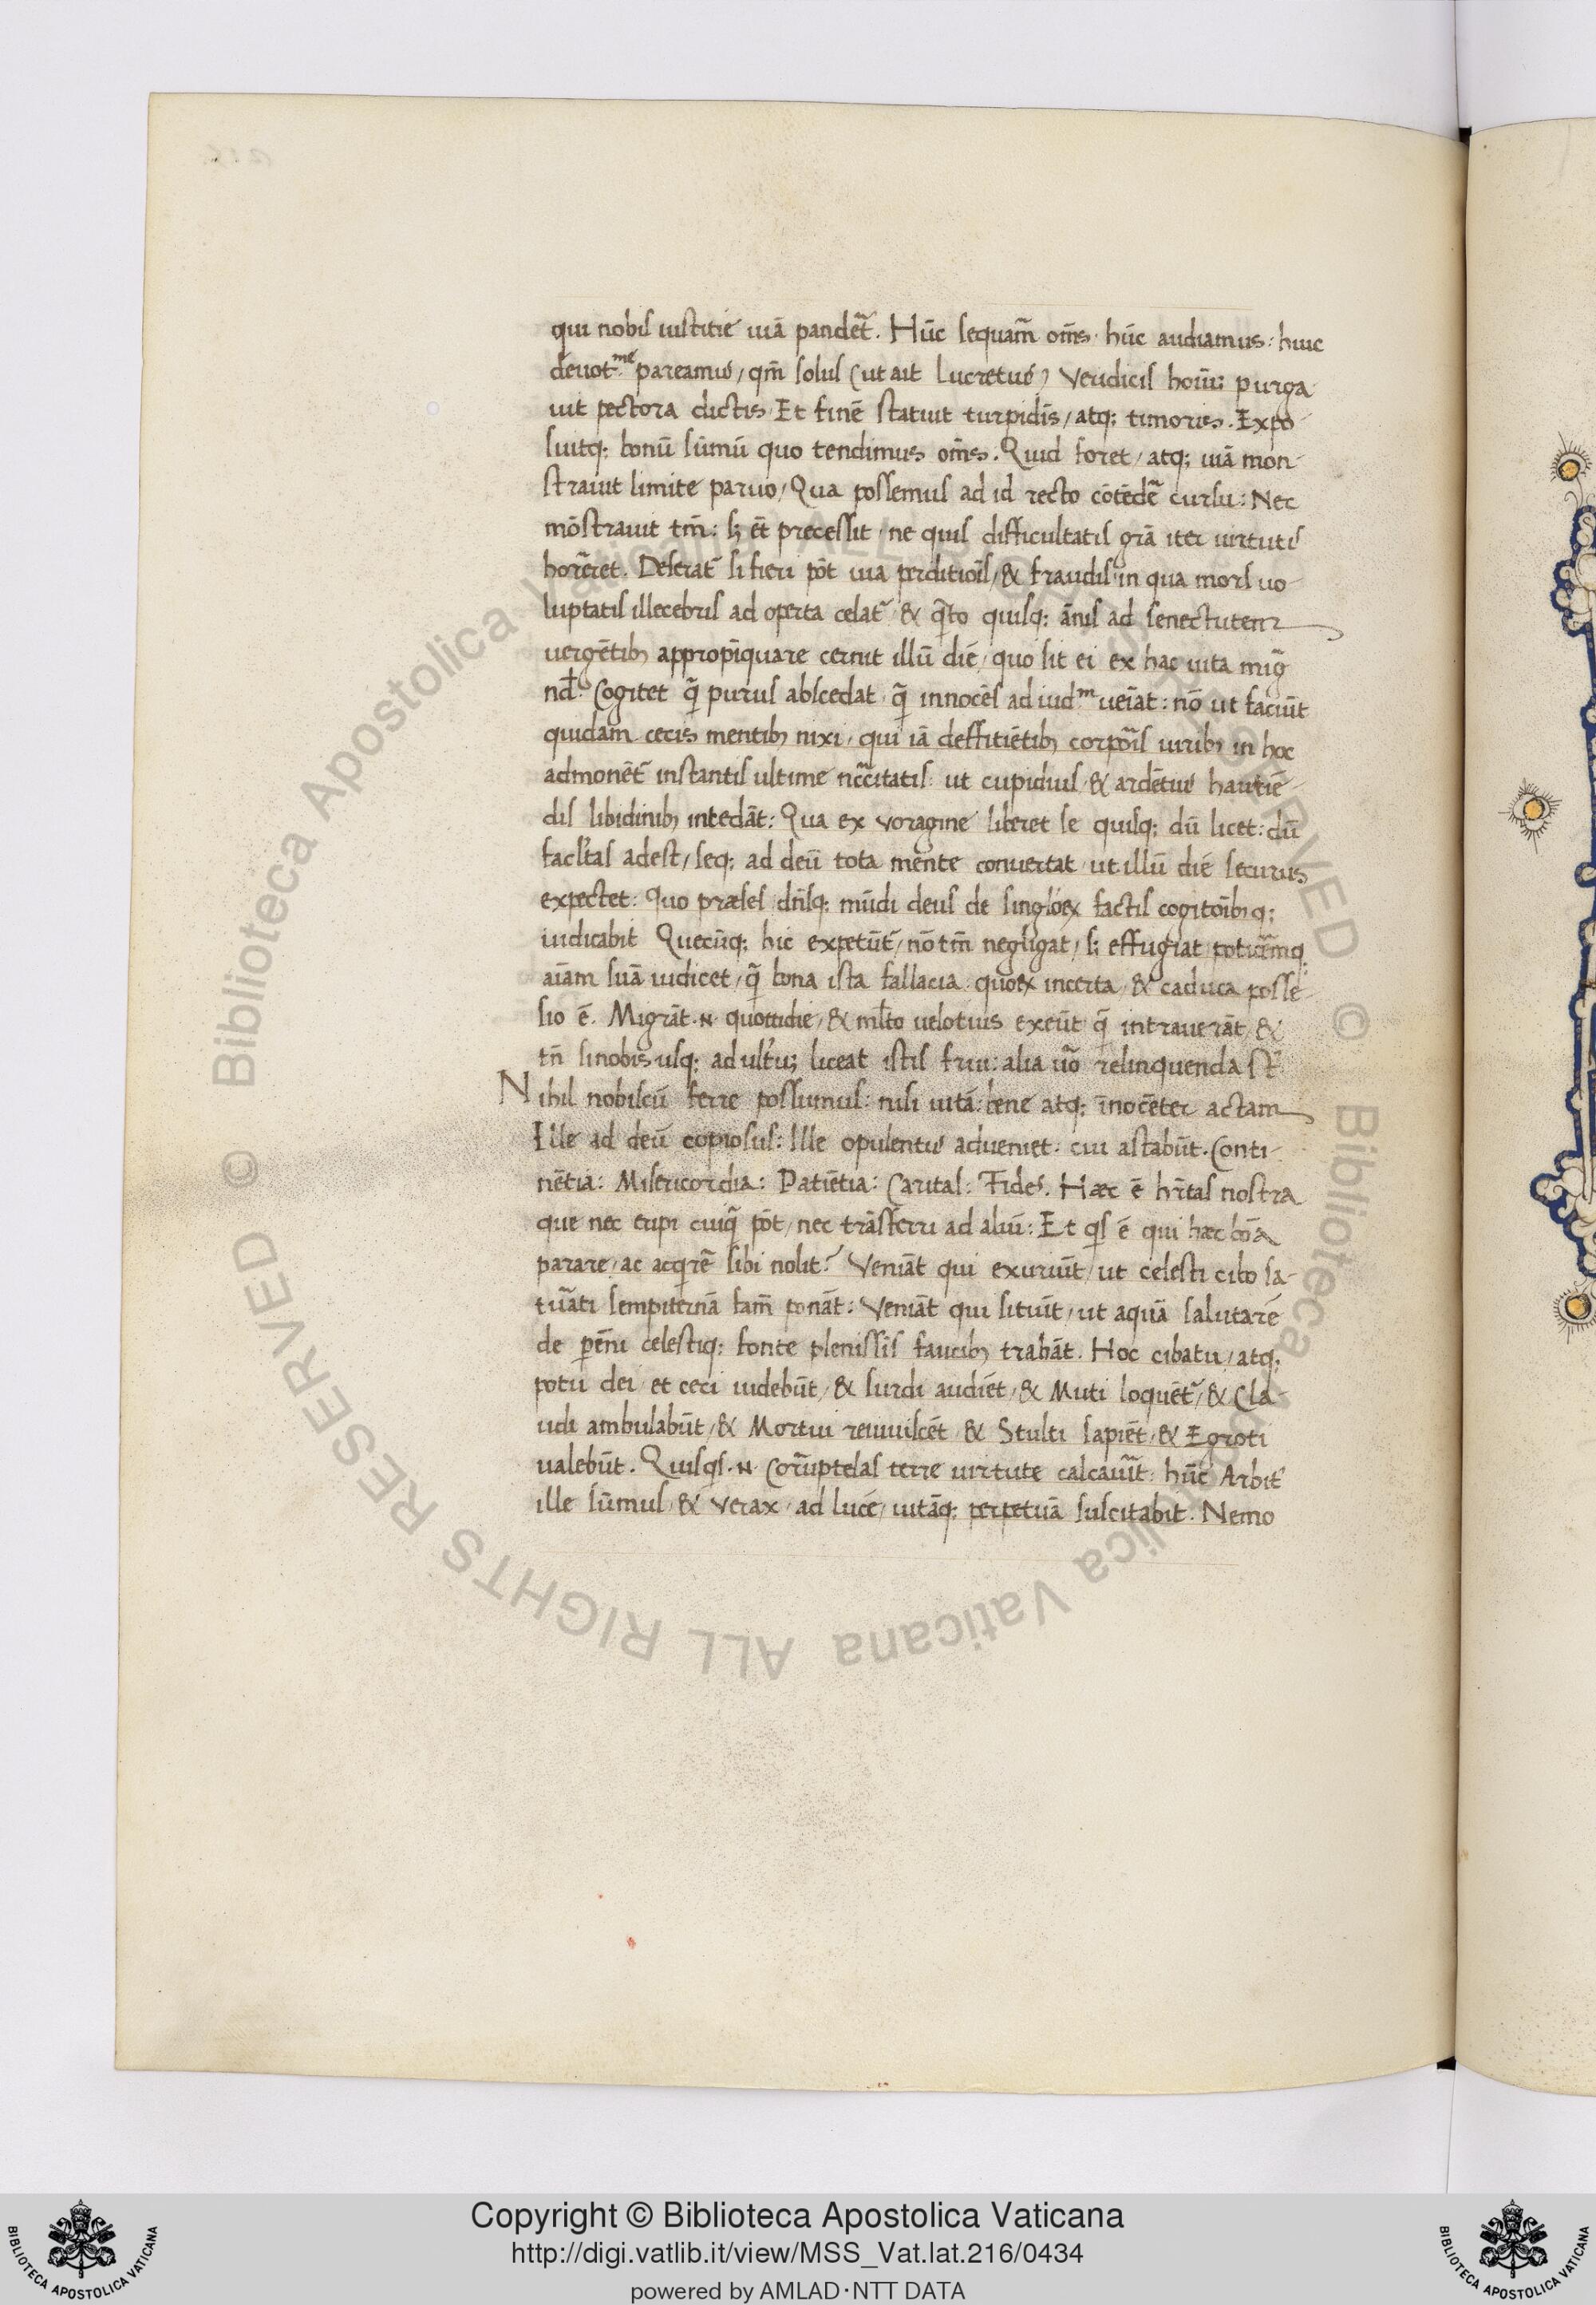 qui nobis iustitie uiā pandet᷑. Hūc sequam̄ om̄s. hūc audiamus: huic
deuot.me pareamus / qm̄ solus (ut ait Lucretius) Veridicis hoīuꝫ purga
uit pectora dictis / Et finē statuit turpidīs / atq; timoris. Expo
suitq; bonū sūmū quo tendimus om̄s. Quid foret / atq; uiā mon-
strauit limite paruo / Qua possemus ad id recto cōtēdē cursu: Nec
mōstrauit tm̄: sꝫ ēt precessit / ne quis difficultatis grā iter uirtutis
horrēret. Deserat᷑ si fieri pōt uia perditiōis / & fraudis in qua mors uo-
luptatis illecebris ad operta celat᷑ & q̄to quisq; ānis ad senectutem
uergētibꝫ appropīquare cernit illū diē / quo sit ei ex hac uita mig̃
nd̄. Cogitet q̄ purus abscedat / q̄ innocēs ad iud.m ueīat: nō ut faciūt
quidam cecis mentibꝫ nixi / qui iā deffitiētibꝫ corpōis uiribꝫ in hoc
admonēt᷑ instantis ultime nc̄citatis: ut cupidius & ardētius hauriē-
dis libidinibꝫ intēdāt: Qua ex voragine liberet se quisq; dū licet: dū
facl̄tas adest / seq; ad deū tota mente conuertat ut illū diē securus
expectet: Quo præses dn̄sq; mūdi deus de singlōꝝ factis cogitōibꝫq;
iudicabit Quecūq; hic expetūt᷑ / nō tm̄ negligat / sꝫ effugiat potiusmq.
aīam suā iudicet / q̄ bona ista fallacia: quoꝝ incerta / & caduca posse-
sio ē. Migrāt .n. quottidie / & ml̄to uelotius exeūt q̄ intrauerāt / &
tn̄ si nobis usq; ad ult᷑uꝫ liceat istis frui: alia uō relinquenda st̄
Nihil nobiscū ferre possumus: nisi uitā: bene atq; īnocēter actam
Ille ad deū copiosus: Ille opulentus adueniet. cui astabūt. Conti-
nētia: Misericordia: Patiētia: Caritas: Fides. Hæc ē hr̄tas nostra
que nec eripi cuiq̄ pōt / nec trāsferri ad aliū: Et qs ē qui hæc bōa
parare / ac acqrē sibi nolit? Veniāt qui exuriūt / ut celesti cibo sa-
tuāti sempiternā fam̄ ponāt: Veniāt qui sitiūt / ut aquā salutarē
de pēni celestiq; fonte plenissīs faucibꝫ trahāt. Hoc cibatu / atq;
potu dei / et ceci uidebūt / & surdi audiēt / & Muti loquēt᷑ / & Cla-
udi ambulabūt / & Mortui reuuiscēt & Stulti sapiēt / & Egroti
ualebūt. Quisqs .n. Corruptelas terre uirtute calcauit: hūc Arbit᷑
ille sūmus / & Verax / ad lucē / uitāq; perpetuā suscitabit. Nemo
© Biblioteca Apostolica Vaticana ALL RIGHTS RESERVED © Biblioteca Apostolica Vaticana ALL RIGHTS RESERVED
BIBLIOTECA APOSTOLICA VATICANA
Copyright © Biblioteca Apostolica Vaticana
http://digi.vatlib.it/view/MSS_Vat.lat.216/0434
powered by AMLAD·NTT DATA
BIBLIOTECA APOSTOLICA VATICANA